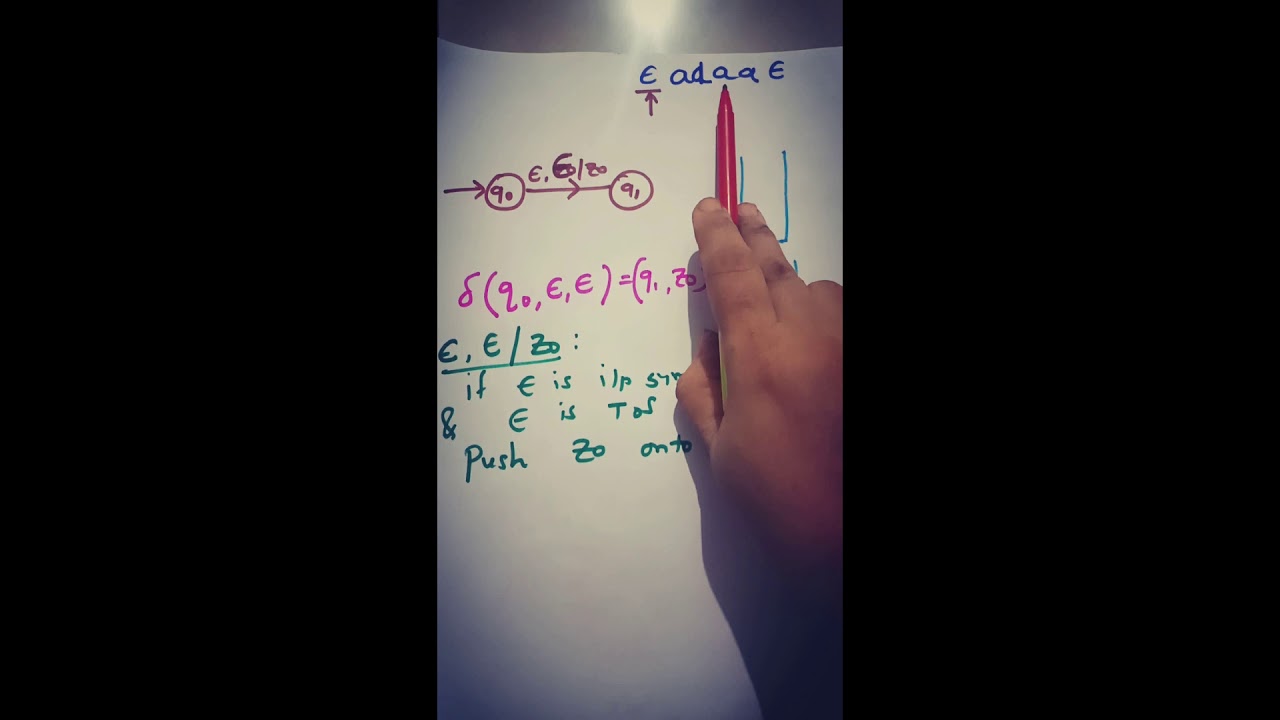 ϵ adaa ϵ
ϵ, ϵ/z₀
q₀ q₁
δ(q₀, ϵ, ϵ) = (q₁, z₀,
ϵ, ϵ/z₀ :
if ϵ is i/p
& ϵ is TOS
Push z₀ onto